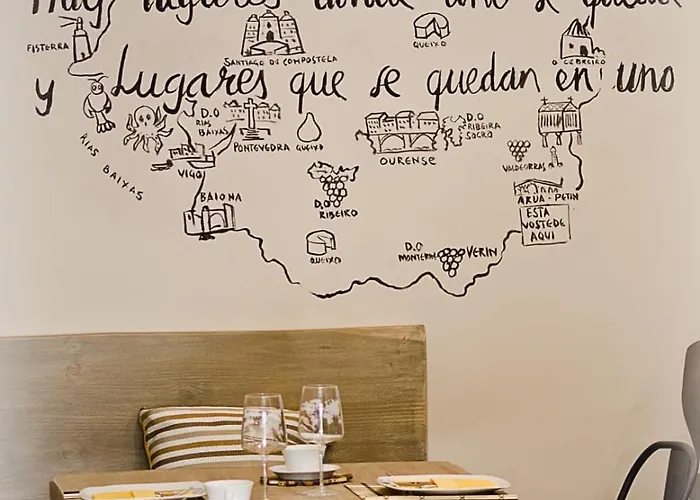 Hay lugares donde uno se queda
FISTERRA
SANTIAGO DE COMPOSTELA
QUEIXO
O CEBREIRO
y Lugares que se quedan en uno
RIAS BAIXAS
D.O RIAS BAIXAS
VIGO
PONTEVEDRA
QUEIXO
OURENSE
D.O RIBEIRA SACRA
VALDEORRAS
BAIONA
D.O RIBEIRO
A RUA - PETIN
ESTA
VOSTEDE
AQUI
QUEIXO
D.O MONTERREI
VERIN